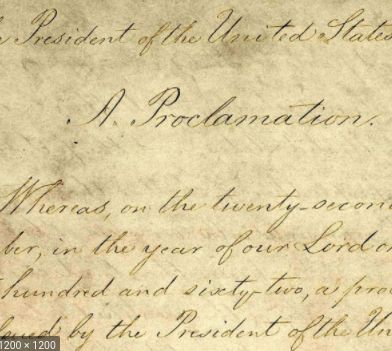 e President of the United States
A Proclamation.
Whereas, on the twenty-second
ber, in the year of our Lord o
hundred and sixty-two, a proc
by the President of the Un
1200 × 1200